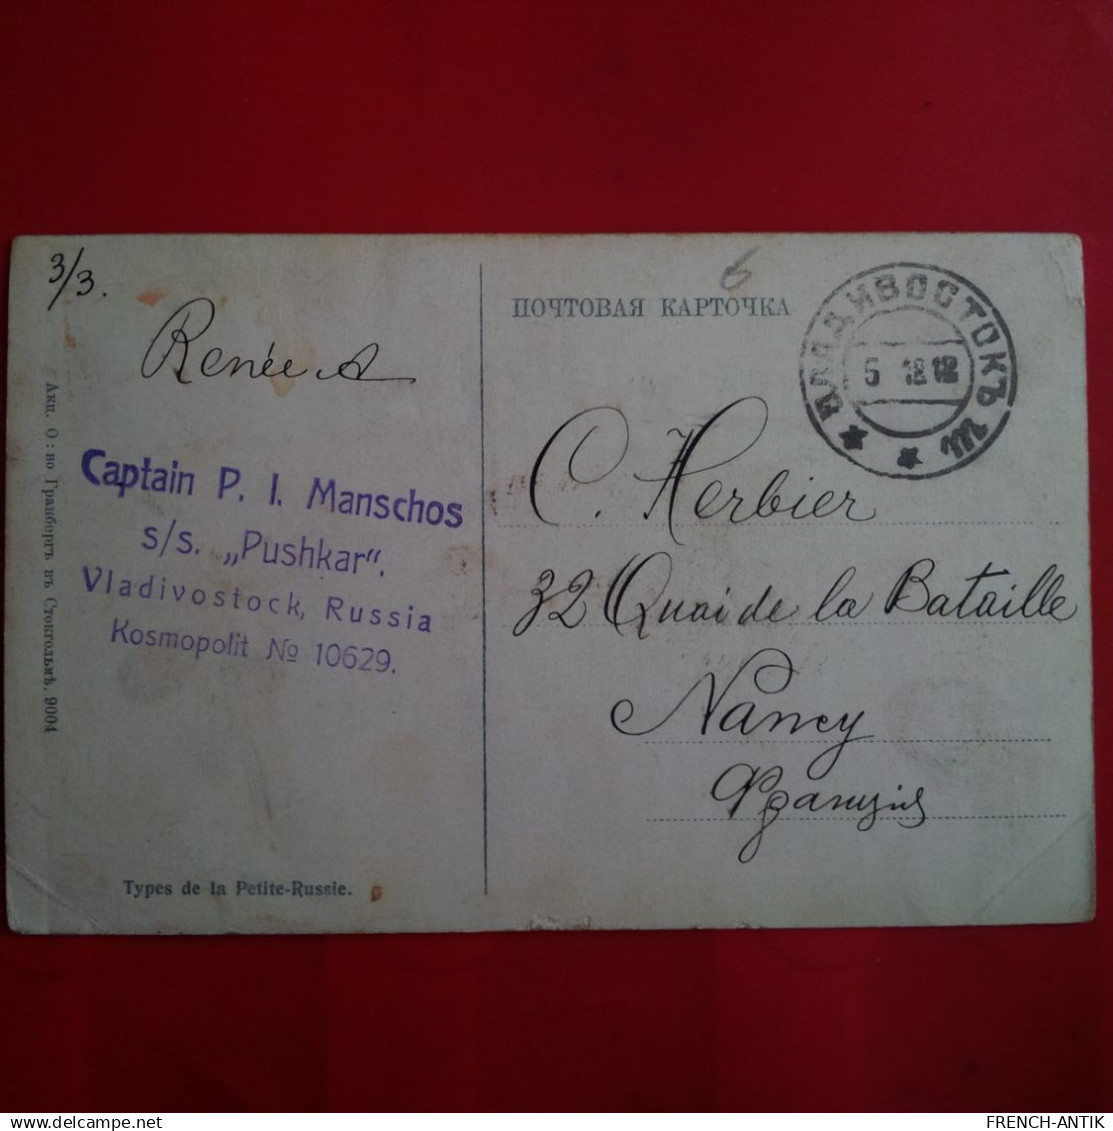 3/3.
Renée A
Captain P. I. Manschos
s/s. „Pushkar".
Vladivostock, Russia
Kosmopolit № 10629.
Types de la Petite-Russie.
Акц. О: во Гранбергъ въ Стокгольмѣ. 9004
6
ПОЧТОВАЯ КАРТОЧКА
ВЛАДИВОСТОКЪ
5 12 12
C. Herbier
32 Quai de la Bataille
Nancy
Франція
FRENCH-ANTIK